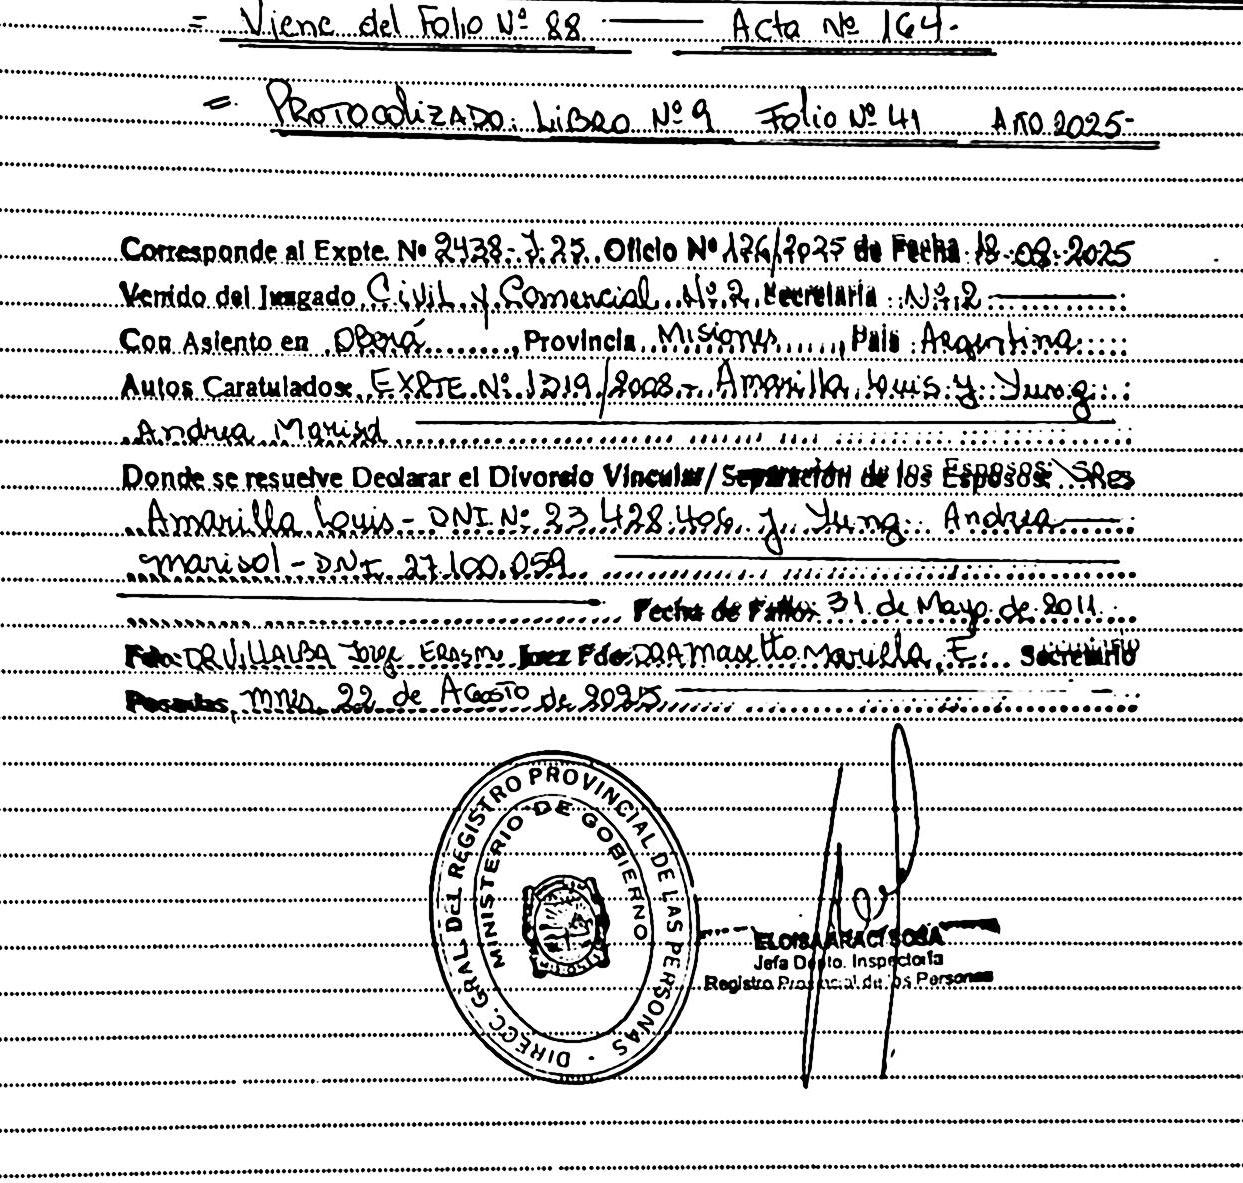 = Viene del Folio Nº 88 —— Acta Nº 164.-
= Protocolizado: Libro Nº 9 Folio Nº 41 Año 2025-
Corresponde al Expte. Nº 2438-J-25. Oficio Nº 126/2025 de Fecha 18-08-2025
Venido del Juzgado Civil y Comercial Nº 2 Secretaria Nº 2
Con Asiento en Oberá, Provincia Misiones, Pais Argentina
Autos Caratulados: EXPTE Nº 1219/2008.- Amarilla Luis y Yung
Andrea Marisol
Donde se resuelve Declarar el Divorcio Vincular/Separación de los Esposos: SRes
Amarilla Louis - DNI Nº 23.428.406 y Yung Andrea
Marisol - DNI 27.100.059
Fecha de Fallo: 31 de Mayo de 2011
Fdo: DR VILLALBA Jorge Erasmo Juez Fdo: DRA Masetto Mariella, E. Secretario
Posadas, mnes, 22 de Agosto de 2025
DIRECC. GRAL DEL REGISTRO PROVINCIAL DE LAS PERSONAS
MINISTERIO DE GOBIERNO
ELOISA ARACI SOSA
Jefa Depto. Inspectoria
Registro Provincial de las Personas